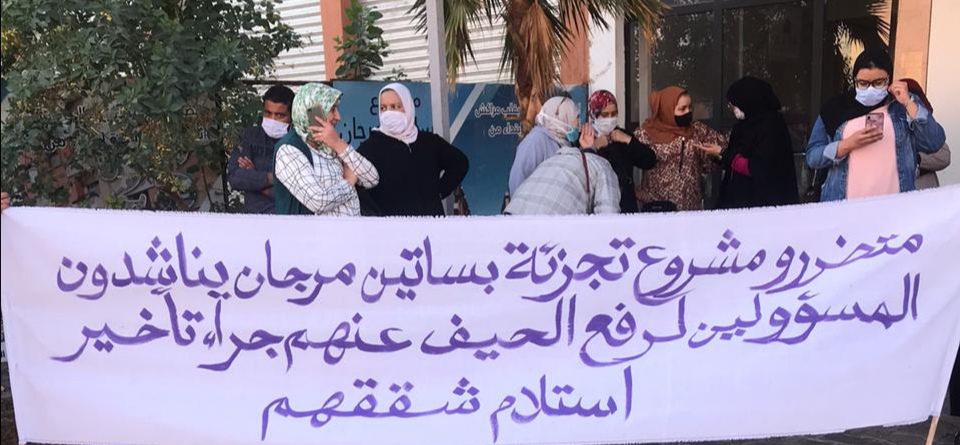 متضررو مشروع تجزئة بساتين مرجان يناشدون
المسؤولين لرفع الحيف عنهم جراء تأخير
استلام شققهم
قلب مراكش
إبتداء من